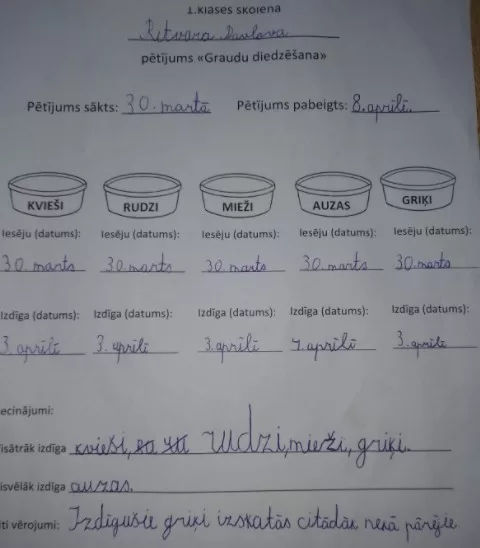 1.klases skolēna
Ritvara Pavlova
pētījums «Graudu diedzēšana»
Pētījums sākts: 30. martā Pētījums pabeigts: 8. aprīlī.
KVIEŠI RUDZI MIEŽI AUZAS GRIĶI
Iesēju (datums): Iesēju (datums): Iesēju (datums): Iesēju (datums): Iesēju (datums):
30. marts 30. marts 30. marts 30. marts 30. marts
Izdīga (datums): Izdīga (datums): Izdīga (datums): Izdīga (datums): Izdīga (datums):
3. aprīlī 3. aprīlī 3. aprīlī 7. aprīlī 3. aprīlī
ecinājumi:
isātrāk izdīga kvieši, rudzi, mieži, griķi.
isvēlāk izdīga auzas.
iti vērojumi: Izdīgušie griķi izskatās citādāk nekā pārējie